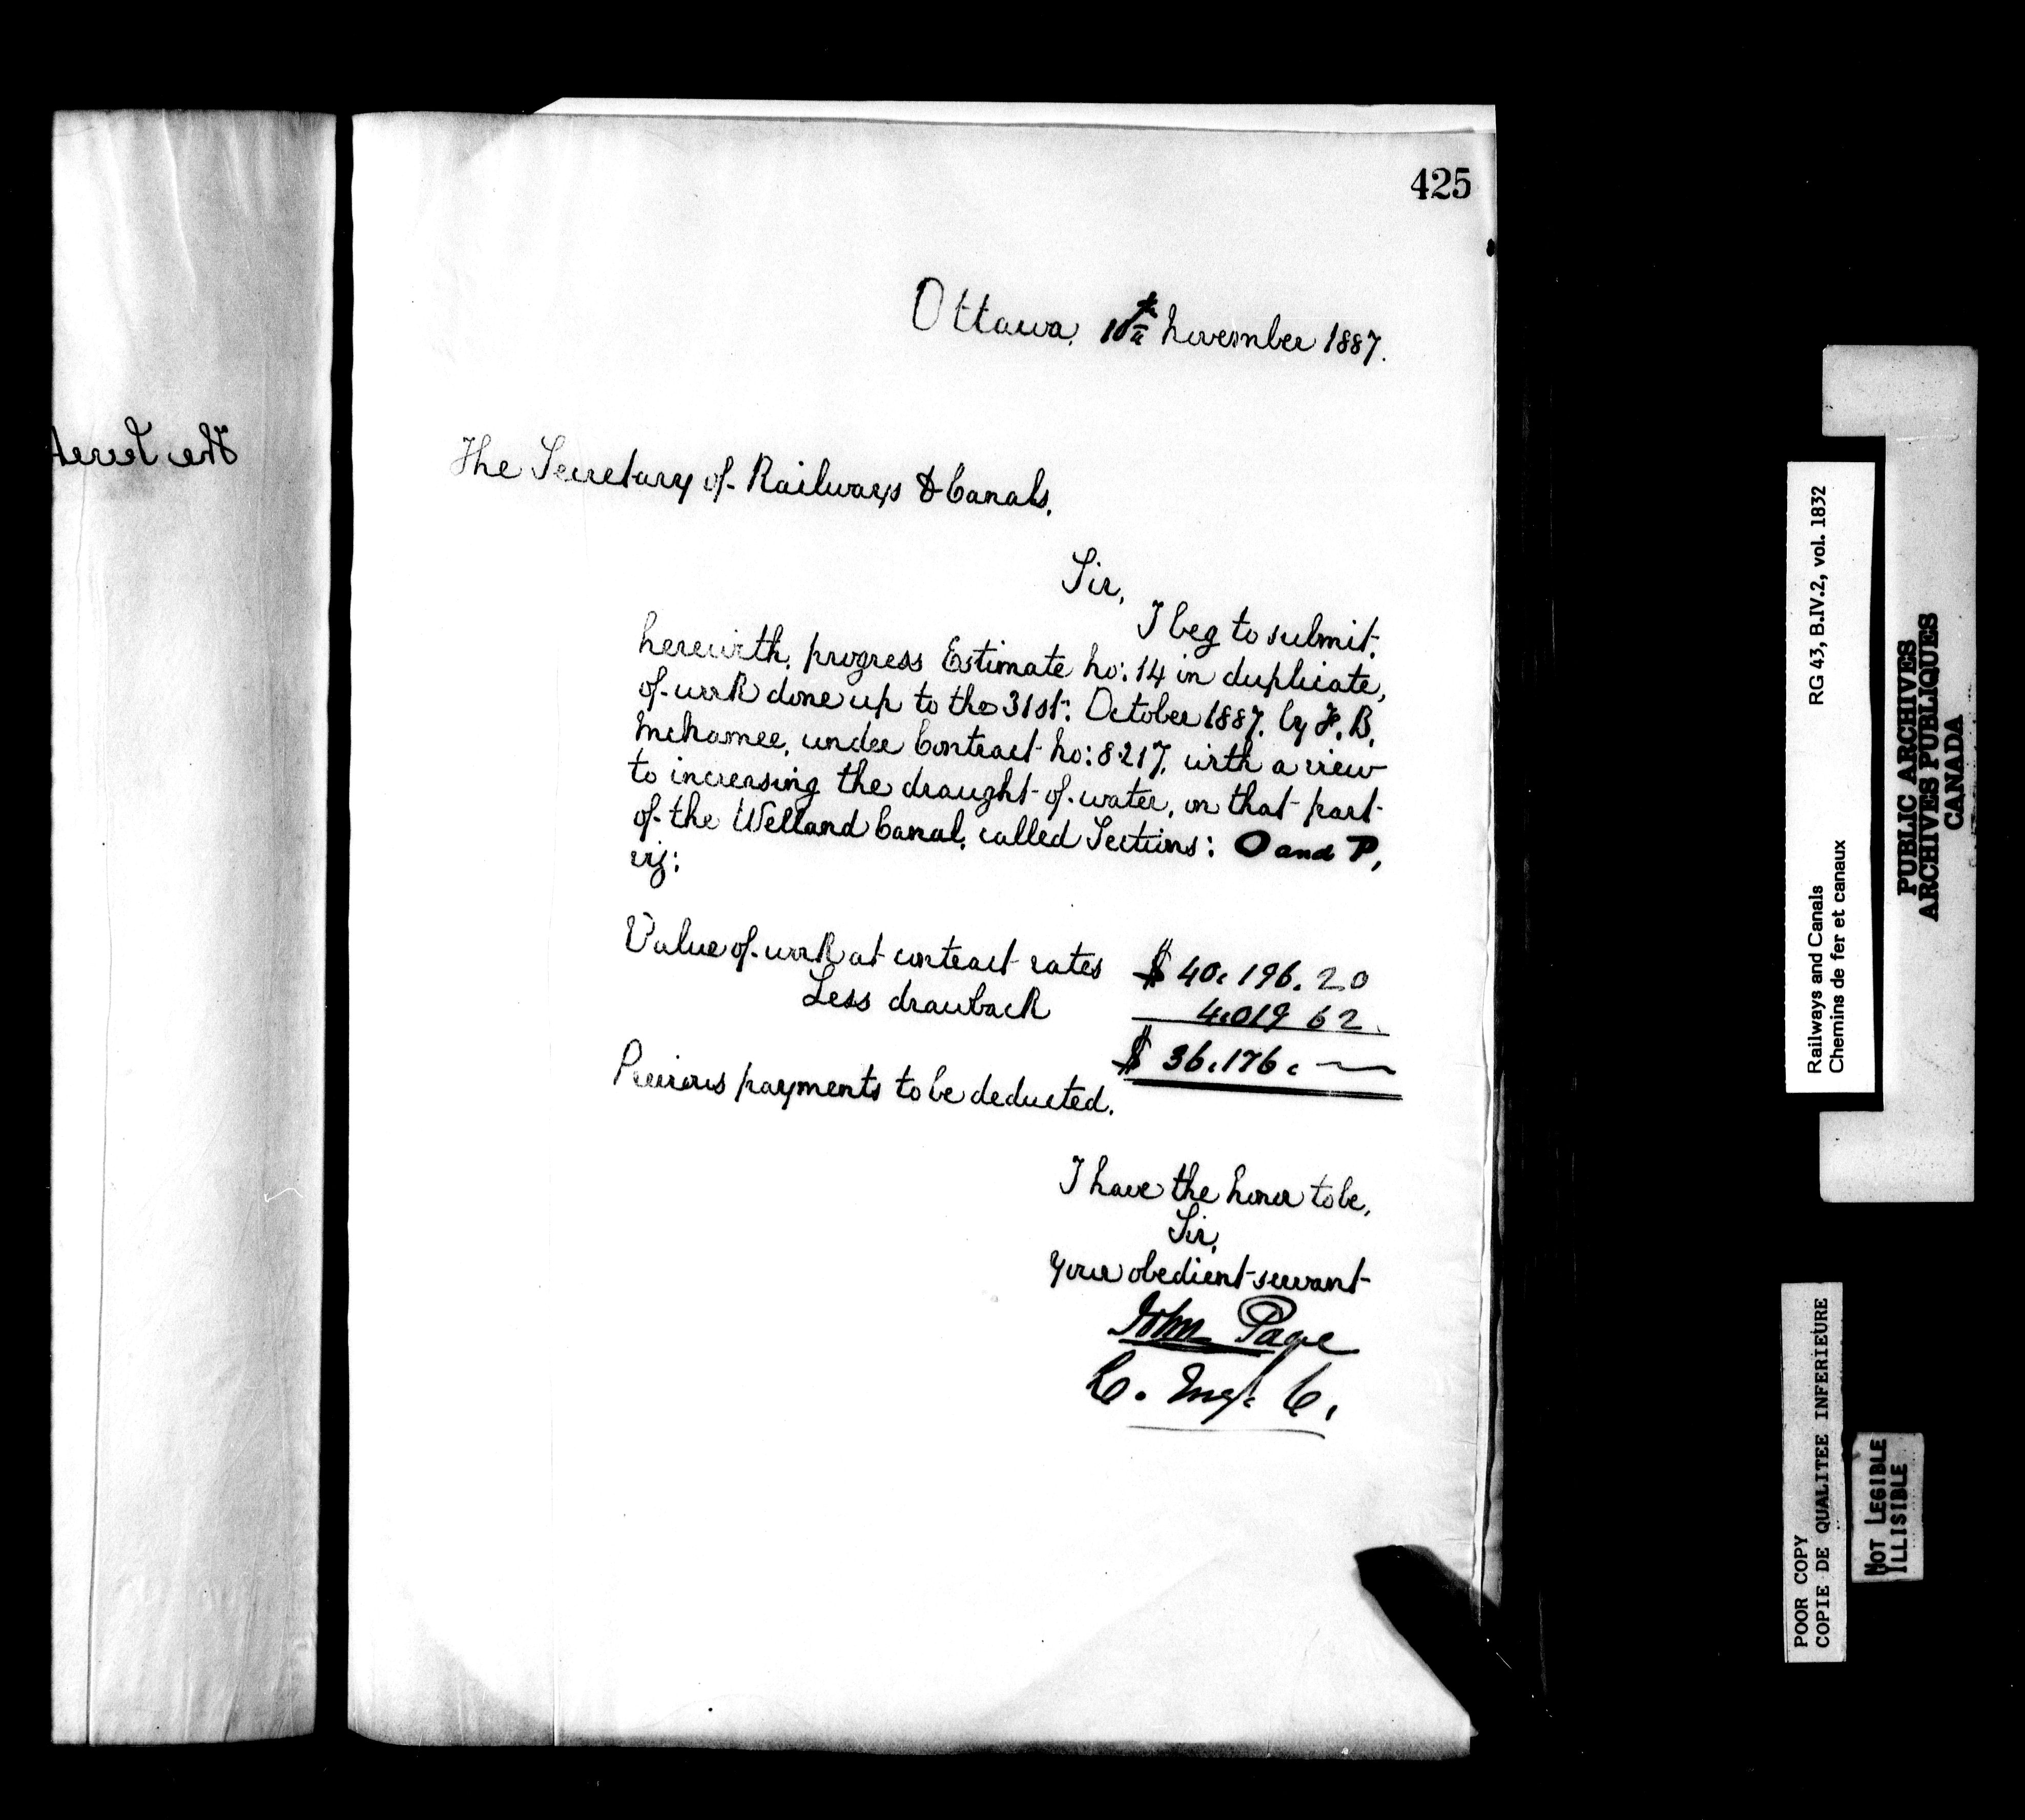 425
Ottawa, 10th November 1887.
The Secretary of Railways & Canals,
Sir,
I beg to submit,
herewith, progress Estimate No: 14 in duplicate,
of work done up to the 31st: October 1887, by F. B.
McNamee, under Contract No: 8217, with a view
to increasing the draught of water, on that part
of the Welland Canal, called Sections: O and P,
viz:
Value of work at contract rates $ 40,196.20
Less drawback 4,019 62
$ 36,176. —
Previous payments to be deducted.
I have the honor to be,
Sir,
Your obedient servant
John Page
C. Engr. C.
Railways and Canals RG 43, B.IV.2, vol. 1832
Chemins de fer et canaux
PUBLIC ARCHIVES
ARCHIVES PUBLIQUES
CANADA
POOR COPY
COPIE DE QUALITEE INFERIEURE
NOT LEGIBLE
ILLISIBLE